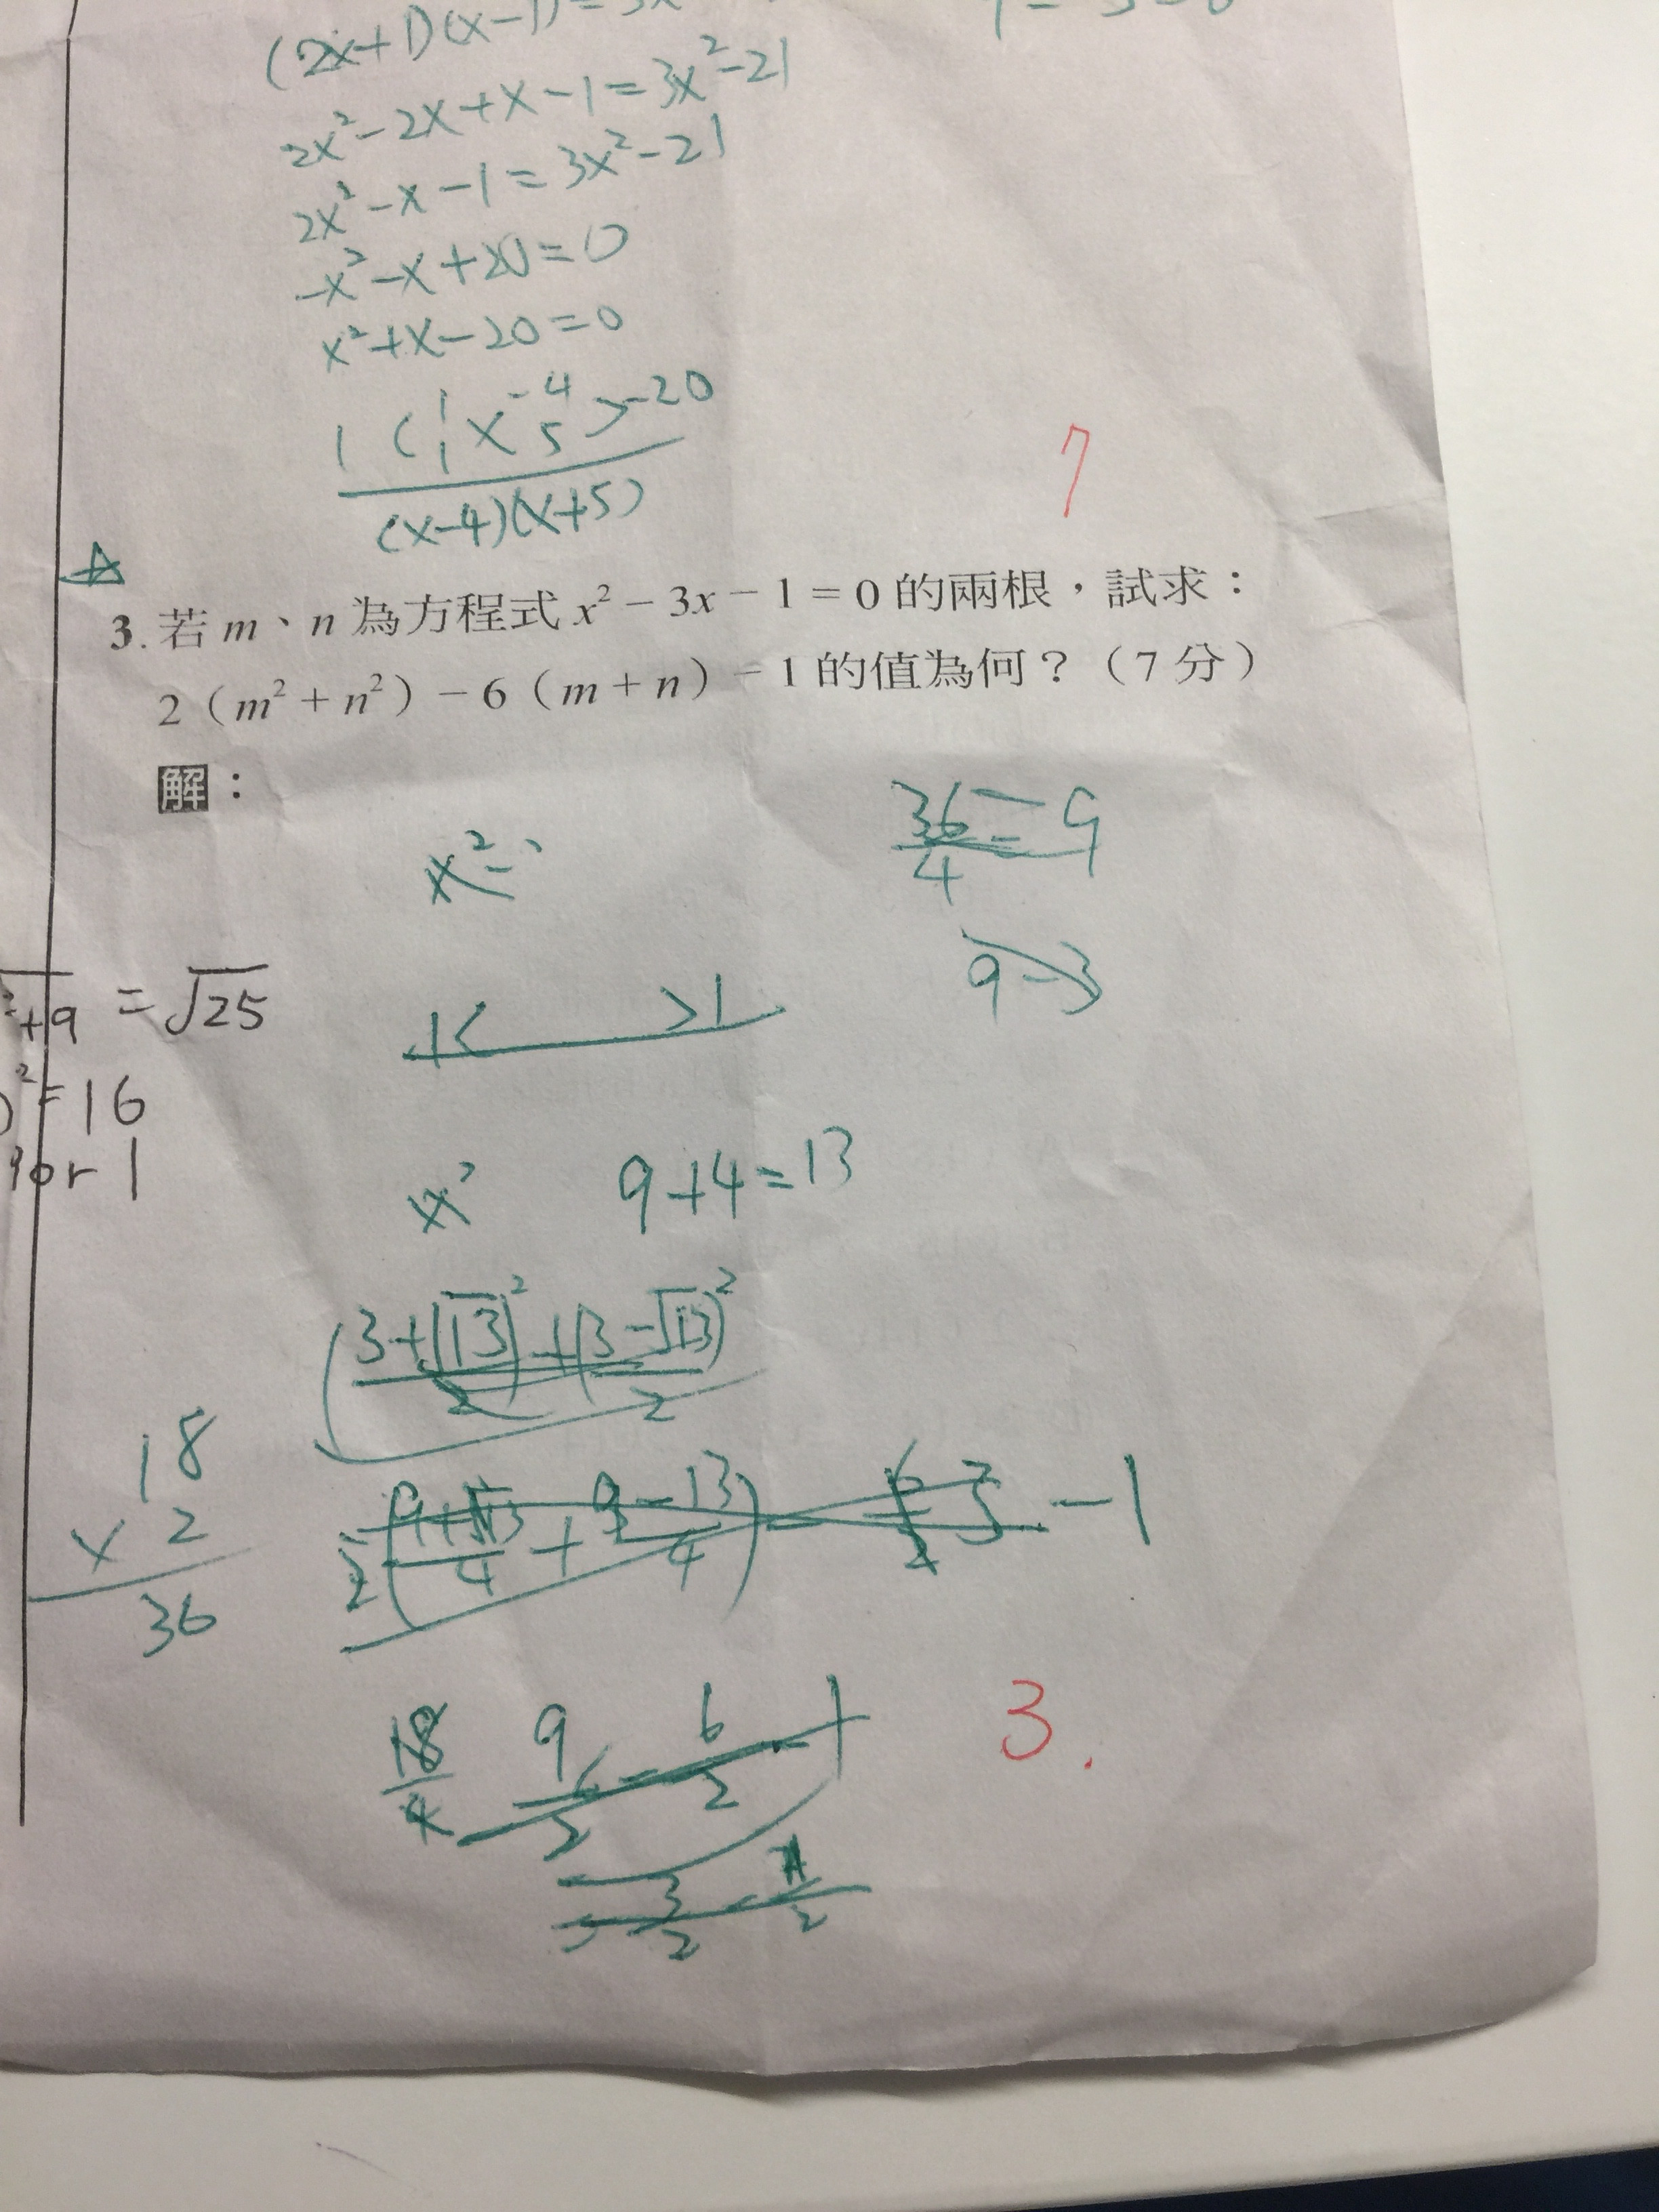 (2x+1)(x-1)=3x
2x²-2x+x-1=3x²-21
2x²-x-1=3x²-21
-x²-x+20=0
x²+x-20=0
1 -4
1 < × > -20
1 5
(x-4)(x+5)
7
3. 若 m、n 為方程式 x² − 3x − 1 = 0 的兩根，試求：
2（m² + n²）− 6（m + n）− 1 的值為何？（7 分）
解：
x²-
36/4 = 9
9-3
²+9 = √25
1< >1
²=16
or 1
x²
9+4=13
(3+√13)²/2 + (3-√13)²/2
18
× 2
36
2(9+13/4 + 9-13/4) -1
18/4 9/2 - 6/2 1
3.
3/2